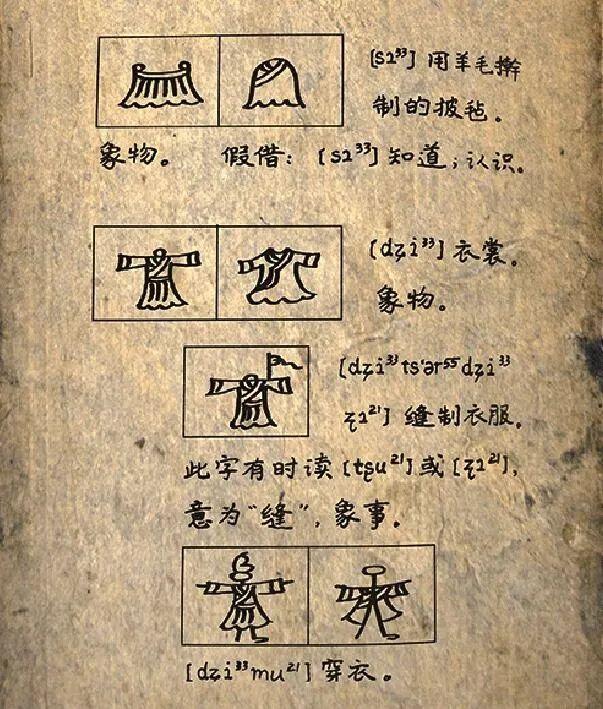 [sɿ³³] 用羊毛擀
制的披毡。
象物。 假借：[sɿ³³] 知道；认识。
[dʑi³³] 衣裳。
象物。
[dʑi³³ tsʻər⁵⁵ dʑi³³
ʐɿ²¹] 缝制衣服。
此字有时读 [tʂu²¹] 或 [ʐɿ²¹]，
意为“缝”，象事。
[dʑi³³ mu²¹] 穿衣。